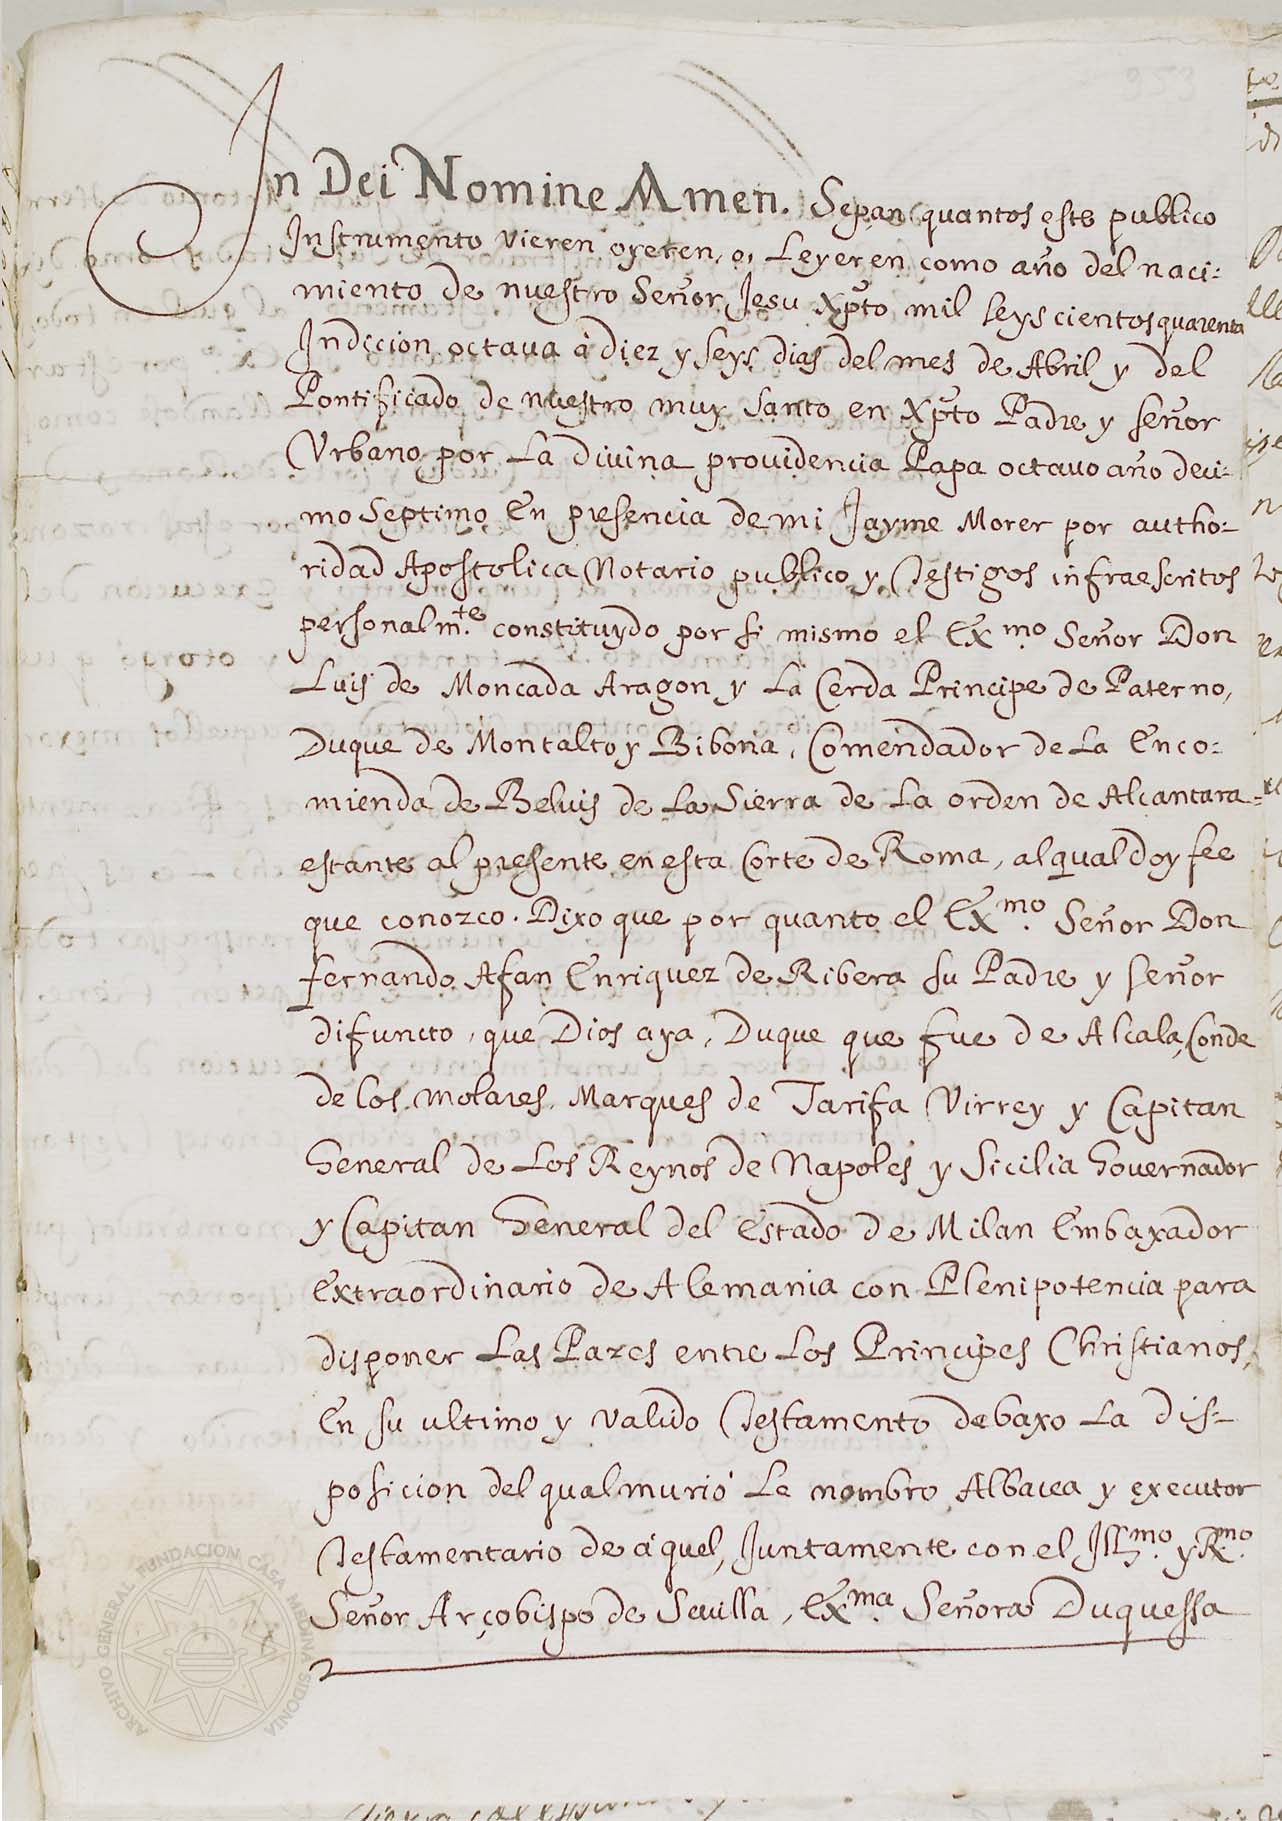 353
In Dei Nomine Amen. Sepan quantos este publico
Instrumento vieren oyeren, o, Leyeren como año del naci-
miento de nuestro Señor Jesu Xpto mil seys cientos quarenta
Indicion octava a diez y seys dias del mes de Abril y del
Pontificado de nuestro muy Santo en Xpto Padre y señor
Vrbano por La divina providencia Papa octavo año deci-
mo Septimo En presencia de mi Jayme Morer por autho-
ridad Apostolica Notario publico y Testigos infraescritos
personalm.te constituydo por si mismo el Ex.mo Señor Don
Luis de Moncada Aragon y La Cerda Principe de Paterno,
Duque de Montalto y Bibona, Comendador de La Enco-
mienda de Belvis de La Sierra de La orden de Alcantara
estante al presente en esta Corte de Roma, al qual doy fee
que conozco. Dixo que por quanto el Ex.mo Señor Don
fernando Afan Enriquez de Ribera su Padre y señor
difuncto, que Dios aya, Duque que fue de Alcala, Conde
de los molares, Marques de Tarifa Virrey y Capitan
General de Los Reynos de Napoles y Sicilia Governador
y Capitan General del Estado de Milan Embaxador
Extraordinario de Alemania con Plenipotencia para
disponer Las Pazes entre Los Principes Christianos,
En su ultimo y valido Testamento debaxo La dis-
posicion del qual murio Le nombro Albacea y executor
Testamentario de aquel, Juntamente con el Ill.mo y R.mo
Señor Arçobispo de Sevilla, Ex.ma Señora Duquessa
ARCHIVO GENERAL FUNDACION CASA MEDINA SIDONIA